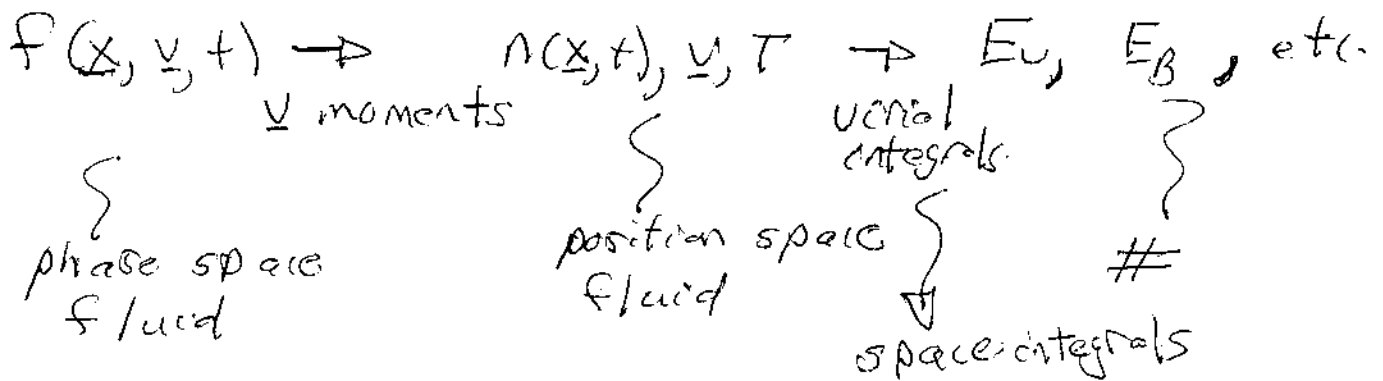 f(x, v, t) → n(x,t), v, T → Ev, EB, etc.
v moments
virial
integrals.
phase space
fluid
position space
fluid
#
space integrals